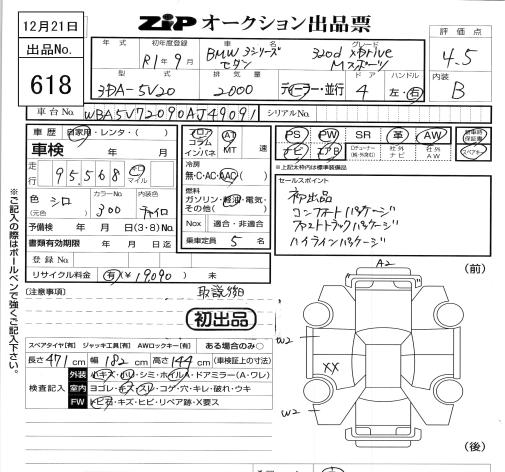 12月21日
ZIP オークション出品票
出品No.
618
年式 初年度登録 車名 グレード
R1年9月 BMW 3シリーズ セダン 320d xDrive Mスポーツ
評価点
4.5
型式 排気量 ドア ハンドル
3DA-5V20 2000 ディーラー・並行 4 左・右
内装
B
車台No. WBA5V72090AJ49091 シリアルNo.
車歴 自家用・レンタ・( )
車検 年 月
走行 95,568 Km マイル
色 シロ (元色) カラーNo. 300 内装色 チャイロ
予備検 年 月 日(3・8)No.
書類有効期限 年 月 日迄
登録No.
リサイクル料金 有(¥19090) 未
フロア コラム インパネ AT MT 速
冷房
無・C・AC・AAC( )
燃料
ガソリン・軽油・電気・その他( )
Nox 適合・非適合
乗車定員 5 名
PS PW SR 革 AW 新車時保証書
ナビ エアB Dチューナー(純・外含む) 社外ナビ 社外AW スペアキー
※上記太枠内は標準装備品
セールスポイント
初出品
コンフォートパッケージ
ファストトラックパッケージ
ハイラインパッケージ
※ご記入の際はボールペンで強くご記入下さい。
(注意事項) 取説 初出品
スペアタイヤ[有] ジャッキ工具[有] AWロックキー[有] ある場合のみ〇
長さ 471 cm 幅 182 cm 高さ 144 cm (車検証上の寸法)
検査記入
外装 キズ・シミ・ホイルA・ドアミラー(A・ワレ)
室内 ヨゴレ・キズ・スレ・コゲ・穴・キレ・破れ・ウキ
FW トビ石・キズ・ヒビ・リペア跡・X要ス
(前)
A2
W2
XX
W2
(後)